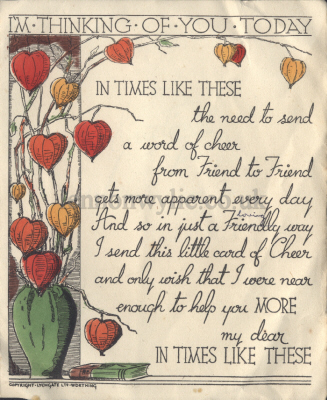 I'M · THINKING · OF · YOU · TODAY
IN TIMES LIKE THESE
the need to send
a word of cheer
from Friend to Friend
gets more apparent every day
And so in just a Friendly loving way
I send this little card of Cheer
and only wish that I were near
enough to help you MORE
my dear
IN TIMES LIKE THESE
COPYRIGHT · LYONGATE LTD · WORTHING